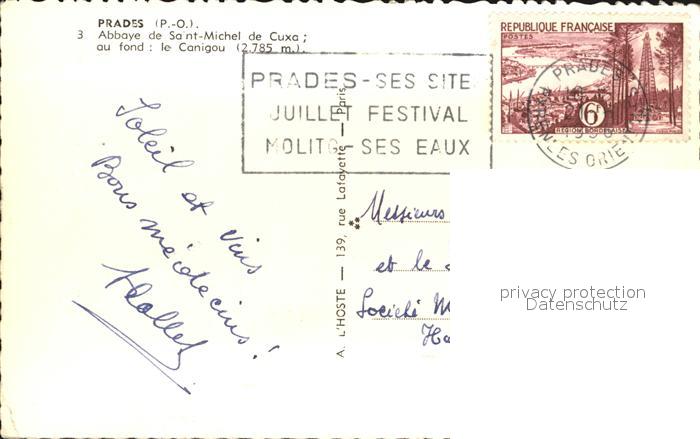 PRADES (P.-O.).
3 Abbaye de Saint-Michel de Cuxa ;
au fond : le Canigou (2.785 m.).
PRADES-SES SITE
JUILLET FESTIVAL
MOLITG-SES EAUX
REPUBLIQUE FRANÇAISE
POSTES
6F
REGION BORDELAISE
PRADES
PYRENEES ORIENTALES
A. L'HOSTE — 139, rue Lafayette — Paris
Soleil et vins
Bons médecins !
Messieurs
et le
Société M
Ha
privacy protection
Datenschutz